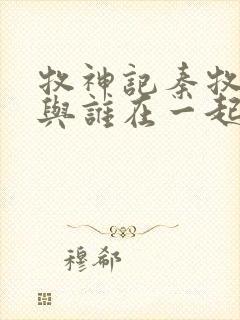 牧神記秦牧
與誰在一起
穆郗